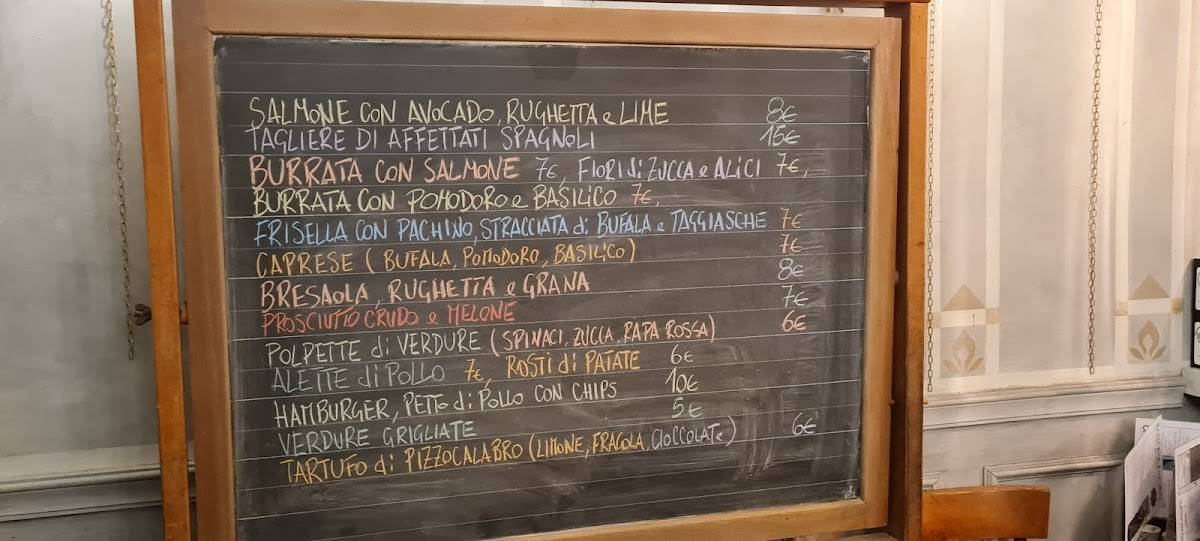 SALMONE CON AVOCADO, RUGHETTA e LIME 8€
TAGLIERE DI AFFETTATI SPAGNOLI 15€
BURRATA CON SALMONE 7€, FIORI di ZUCCA e ALICI 7€,
BURRATA CON POMODORO e BASILICO 7€,
FRISELLA CON PACHINO, STRACCIATA di BUFALA e TAGGIASCHE 7€
CAPRESE (BUFALA, POMODORO, BASILICO) 7€
BRESAOLA, RUGHETTA e GRANA 8€
PROSCIUTTO CRUDO e MELONE 7€
POLPETTE di VERDURE (SPINACI, ZUCCA, RAPA ROSSA) 6€
ALETTE di POLLO 7€, ROSTI di PATATE 6€
HAMBURGER, PETTO di POLLO CON CHIPS 10€
VERDURE GRIGLIATE 5€
TARTUFO di PIZZOCALABRO (LIMONE, FRAGOLA, CIOCCOLATe) 6€